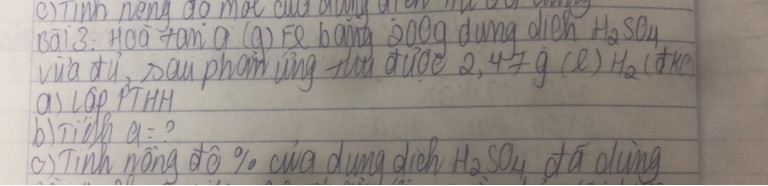 c) Tính nồng độ mol của dung dịch
Bài 3: Hoà tan a (g) Fe bằng 200g dung dịch H2SO4
vừa đủ, sau phản ứng thu được 2,479 (l) H2 (đkc)
a) Lập PTHH
b) Tính a = ?
c) Tính nồng độ % của dung dịch H2SO4 đã dùng